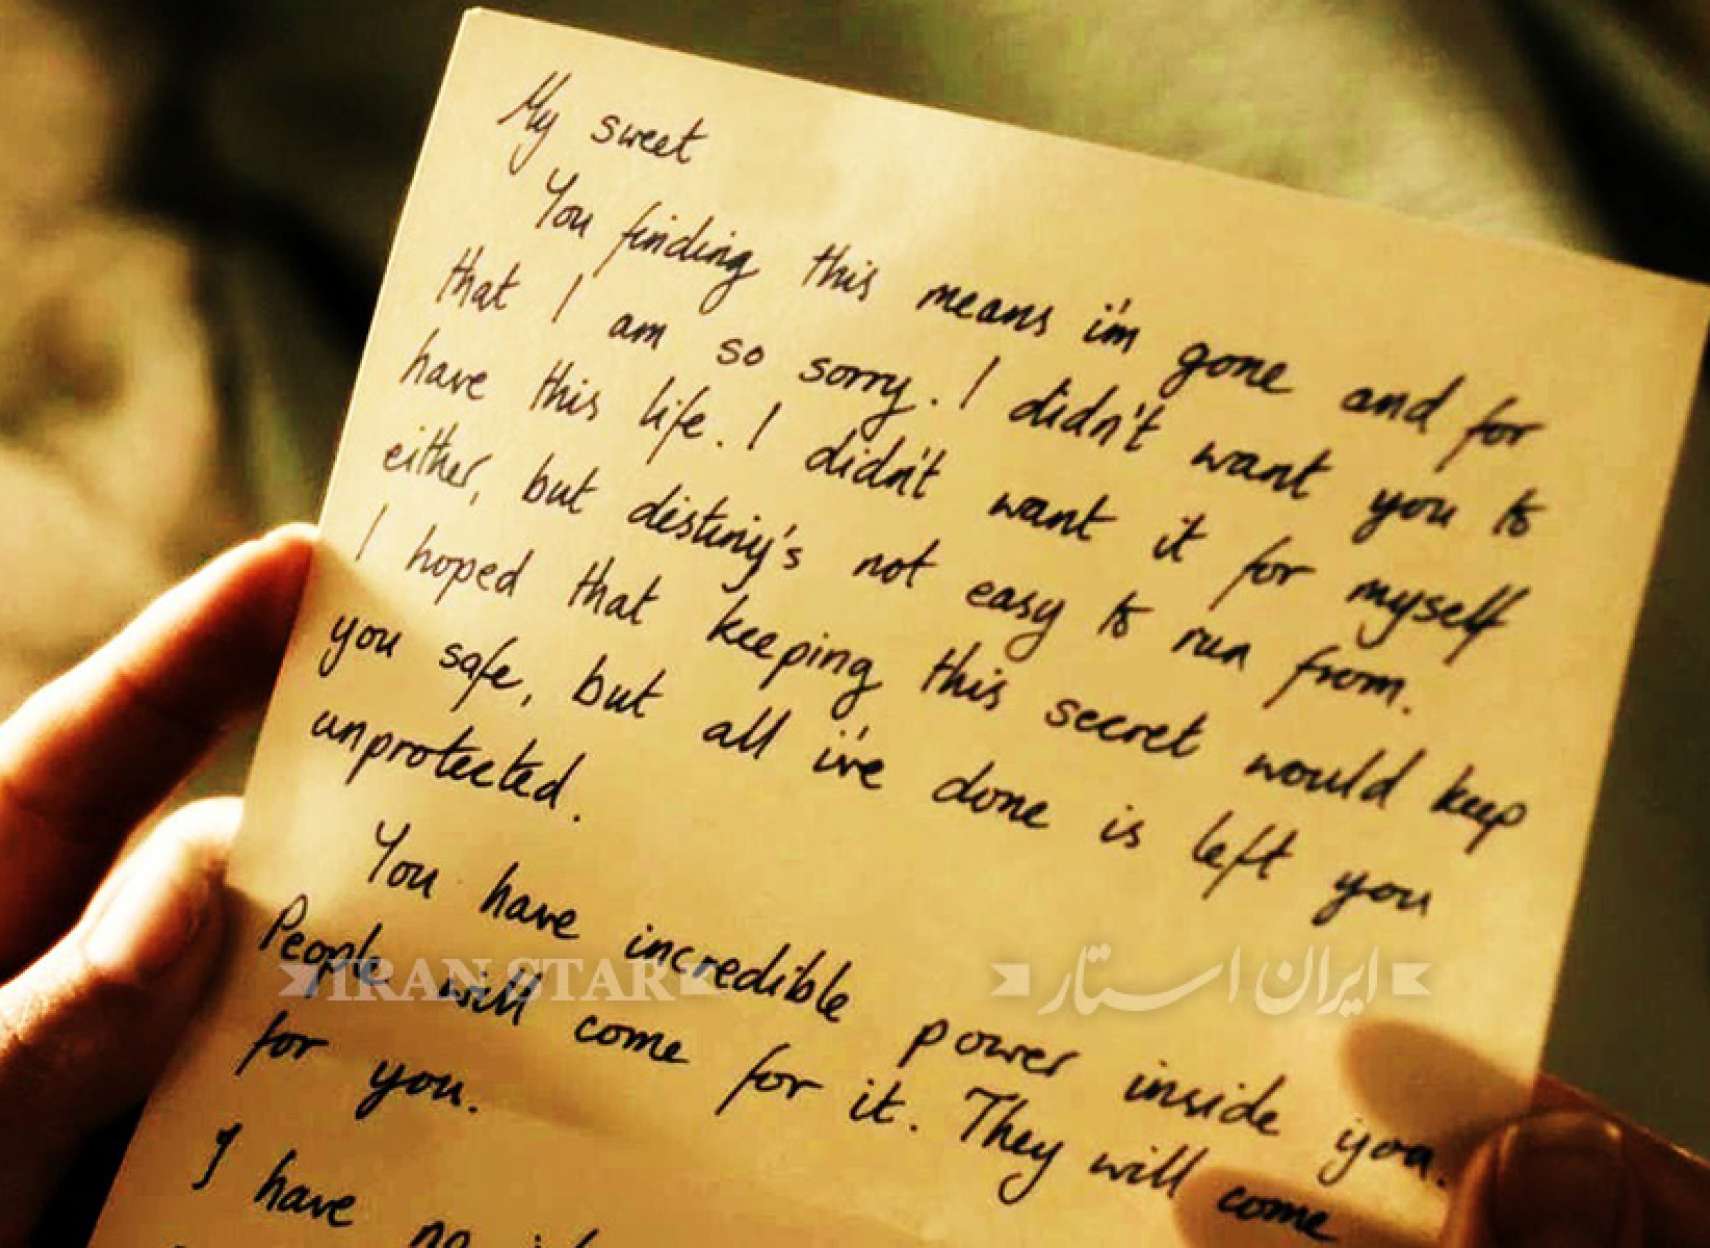 My sweet
You finding this means i'm gone and for
that I am so sorry. I didn't want you to
have this life. I didn't want it for myself
either, but destiny's not easy to run from.
I hoped that keeping this secret would keep
you safe, but all i've done is left you
unprotected.
You have incredible power inside you.
People will come for it. They will come
for you.
I have no
IRAN STAR
ایران استار